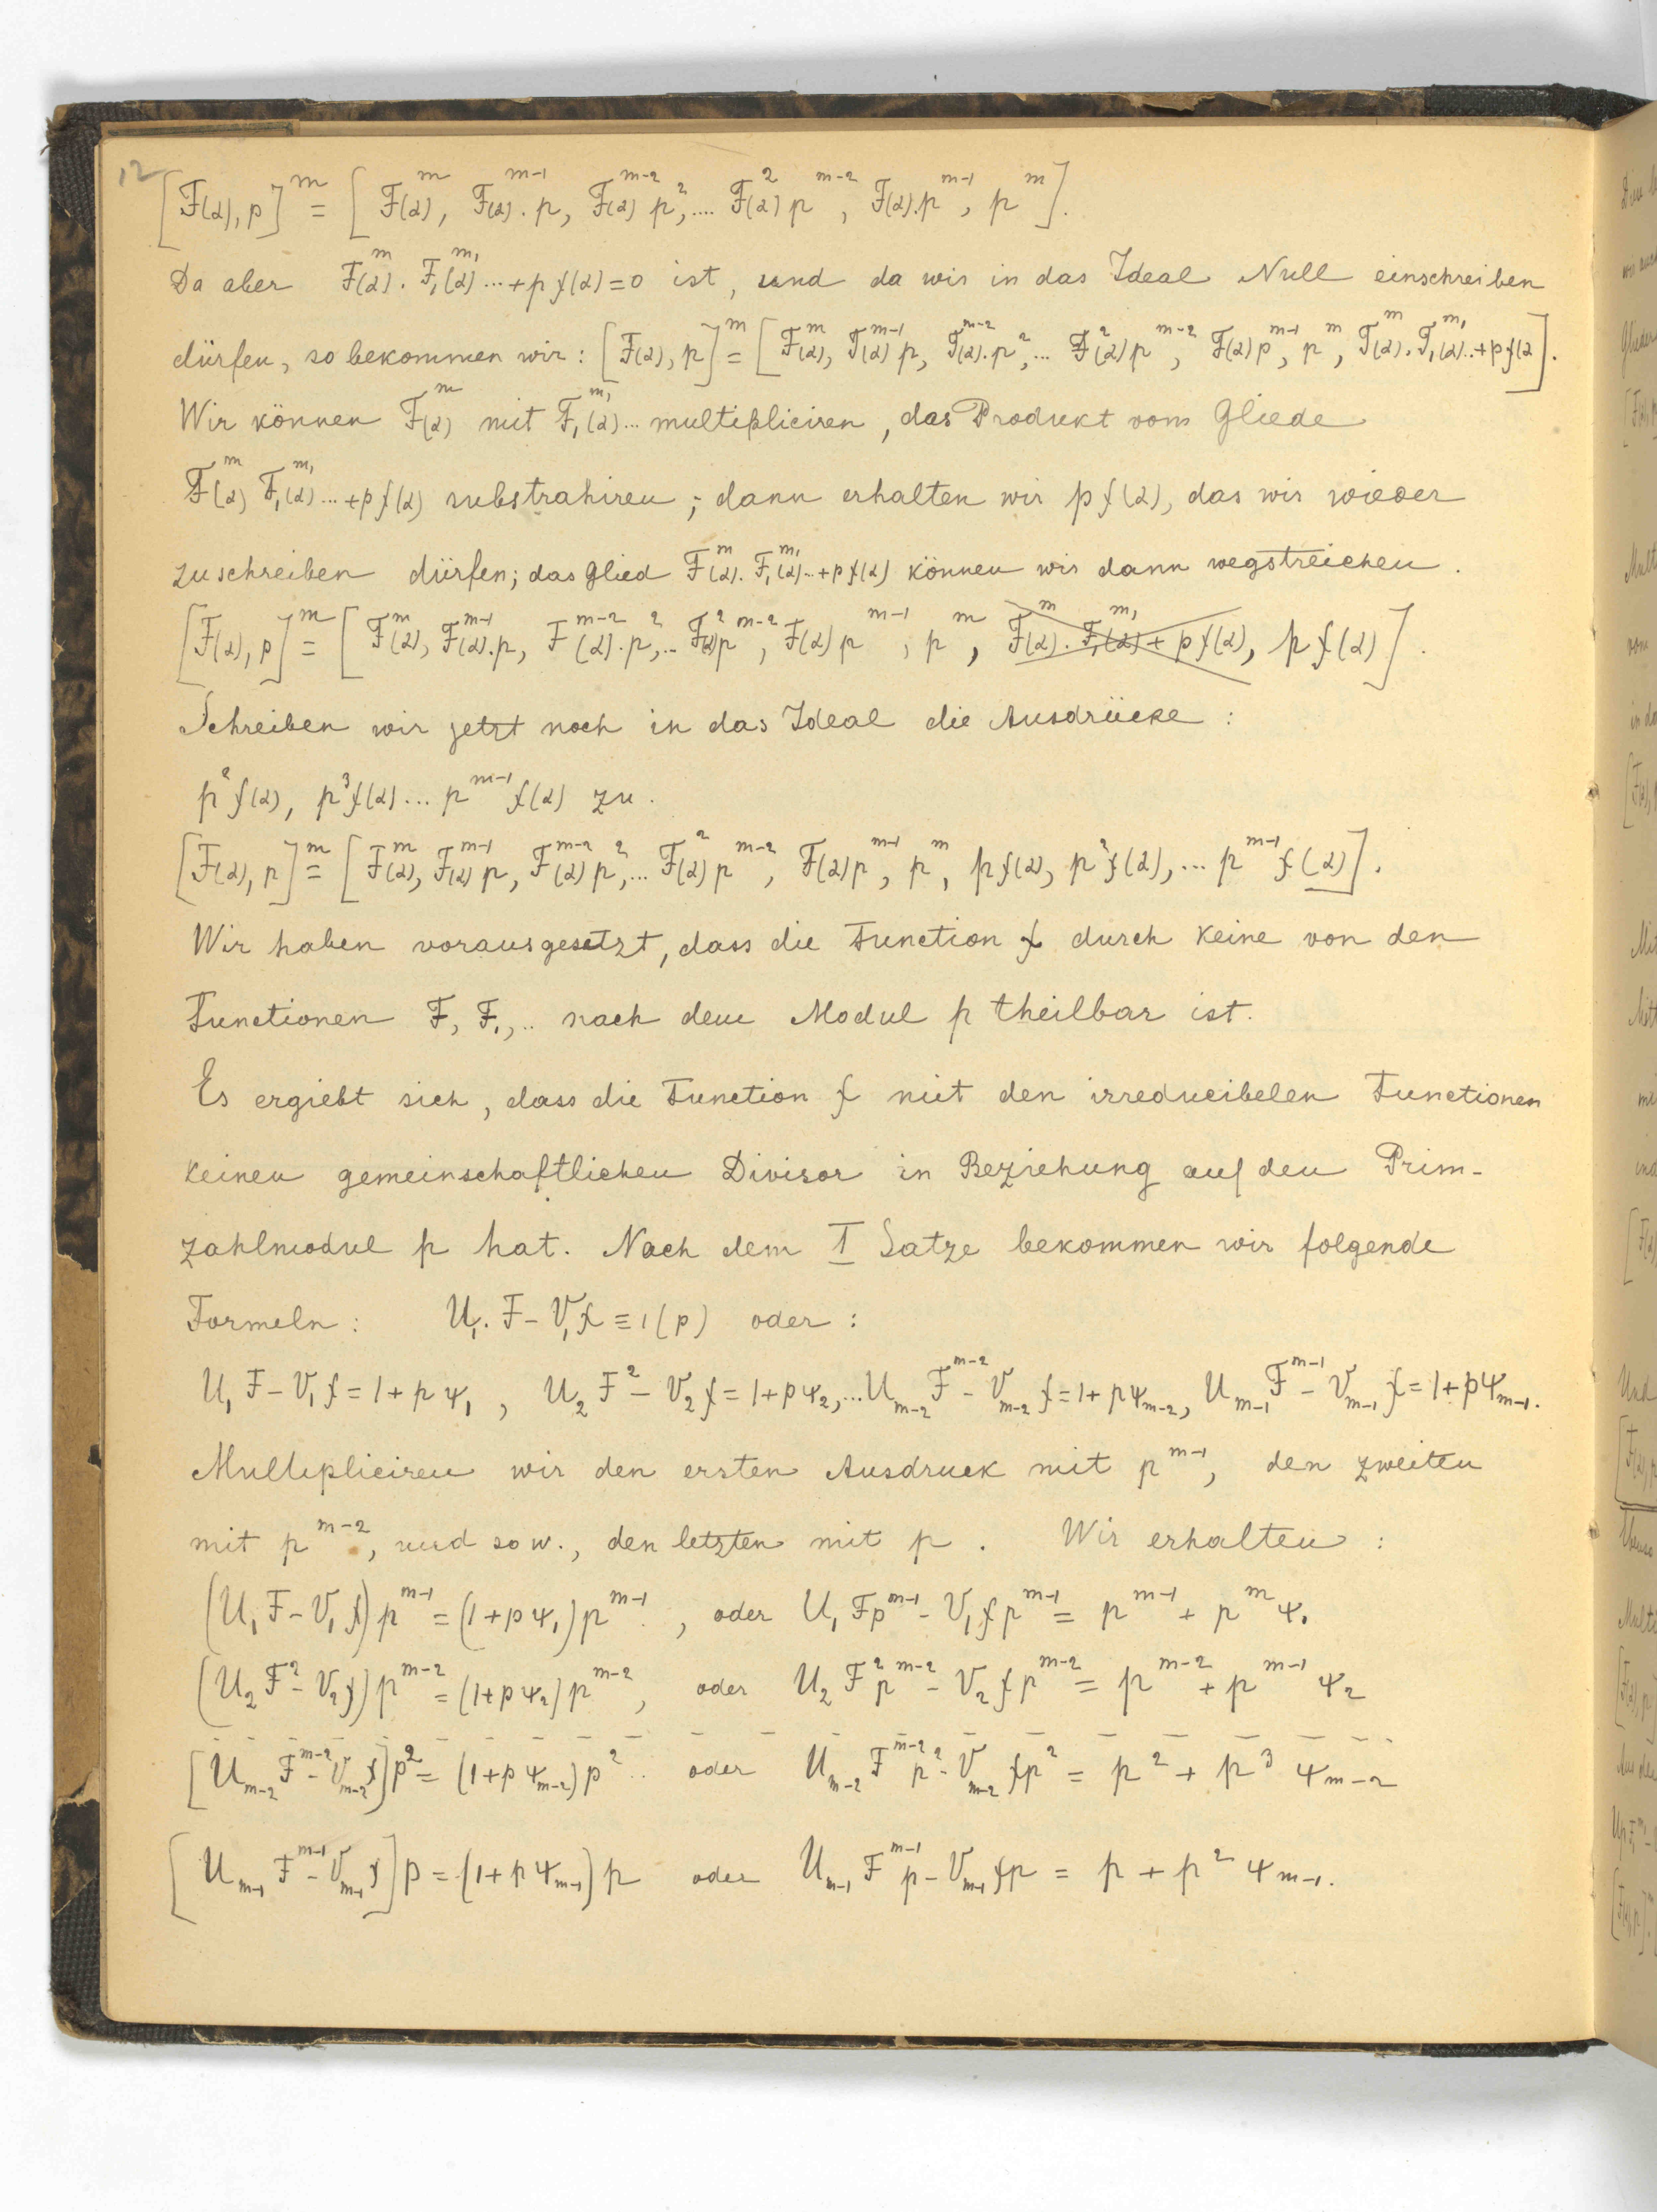 12
[F(α), p]^m = [F(α)^m, F(α)^{m-1}. p, F(α)^{m-2} p^2, .... F(α)^2 p^{m-2}, F(α).p^{m-1}, p^m].
Da aber F(α)^m. F₁(α)^{m₁} ... + p f(α) = 0 ist, und da wir in das Ideal Null einschreiben
dürfen, so bekommen wir: [F(α), p]^m = [F(α)^m, F(α)^{m-1} p, F(α)^{m-2}. p^2, ... F(α)^2 p^{m-2}, F(α) p^{m-1}, p^m, F(α)^m. F₁(α)^{m₁}.. + p f(α].
Wir können F(α)^m mit F₁(α)^{m₁} ... multipliciren, das Produkt vom Gliede
F(α)^m F₁(α)^{m₁} ... + p f(α) substrahiren; dann erhalten wir p f(α), das wir wieder
zuschreiben dürfen; das Glied F(α)^m. F₁(α)^{m₁} .. + p f(α) können wir dann wegstreichen.
[F(α), p]^m = [F(α)^m, F(α)^{m-1}. p, F(α)^{m-2}. p^2, .. F(α)^2 p^{m-2}, F(α) p^{m-1}, p^m, F(α)^m. F₁(α)^{m₁} + p f(α), p f(α)].
Schreiben wir jetzt noch in das Ideal die Ausdrücke:
p^2 f(α), p^3 f(α) ... p^{m-1} f(α) zu.
[F(α), p]^m = [F(α)^m, F(α)^{m-1} p, F(α)^{m-2} p^2, ... F(α)^2 p^{m-2}, F(α) p^{m-1}, p^m, p f(α), p^2 f(α), ... p^{m-1} f(α)].
Wir haben vorausgesetzt, dass die Function f durch keine von den
Functionen F, F₁, .. nach dem Modul p theilbar ist.
Es ergiebt sich, dass die Function f mit den irreducibelen Functionen
keinen gemeinschaftlichen Divisor in Beziehung auf den Prim-
zahlmodul p hat. Nach dem I Satze bekommen wir folgende
Formeln: U₁. F - V₁ f ≡ 1 (p) oder:
U₁ F - V₁ f = 1 + p ψ₁, U₂ F^2 - V₂ f = 1 + p ψ₂, ... U_{m-2} F^{m-2} - V_{m-2} f = 1 + p ψ_{m-2}, U_{m-1} F^{m-1} - V_{m-1} f = 1 + p ψ_{m-1}.
Multipliciren wir den ersten Ausdruck mit p^{m-1}, den zweiten
mit p^{m-2}, und so w., den letzten mit p. Wir erhalten:
(U₁ F - V₁ f) p^{m-1} = (1 + p ψ₁) p^{m-1}, oder U₁ F p^{m-1} - V₁ f p^{m-1} = p^{m-1} + p^m ψ₁
(U₂ F^2 - V₂ f) p^{m-2} = (1 + p ψ₂) p^{m-2}, oder U₂ F^2 p^{m-2} - V₂ f p^{m-2} = p^{m-2} + p^{m-1} ψ₂
[U_{m-2} F^{m-2} - V_{m-2} f] p^2 = (1 + p ψ_{m-2}) p^2 .. oder U_{m-2} F^{m-2} p^2 - V_{m-2} f p^2 = p^2 + p^3 ψ_{m-2}
[U_{m-1} F^{m-1} - V_{m-1} f] p = (1 + p ψ_{m-1}) p oder U_{m-1} F^{m-1} p - V_{m-1} f p = p + p^2 ψ_{m-1}.